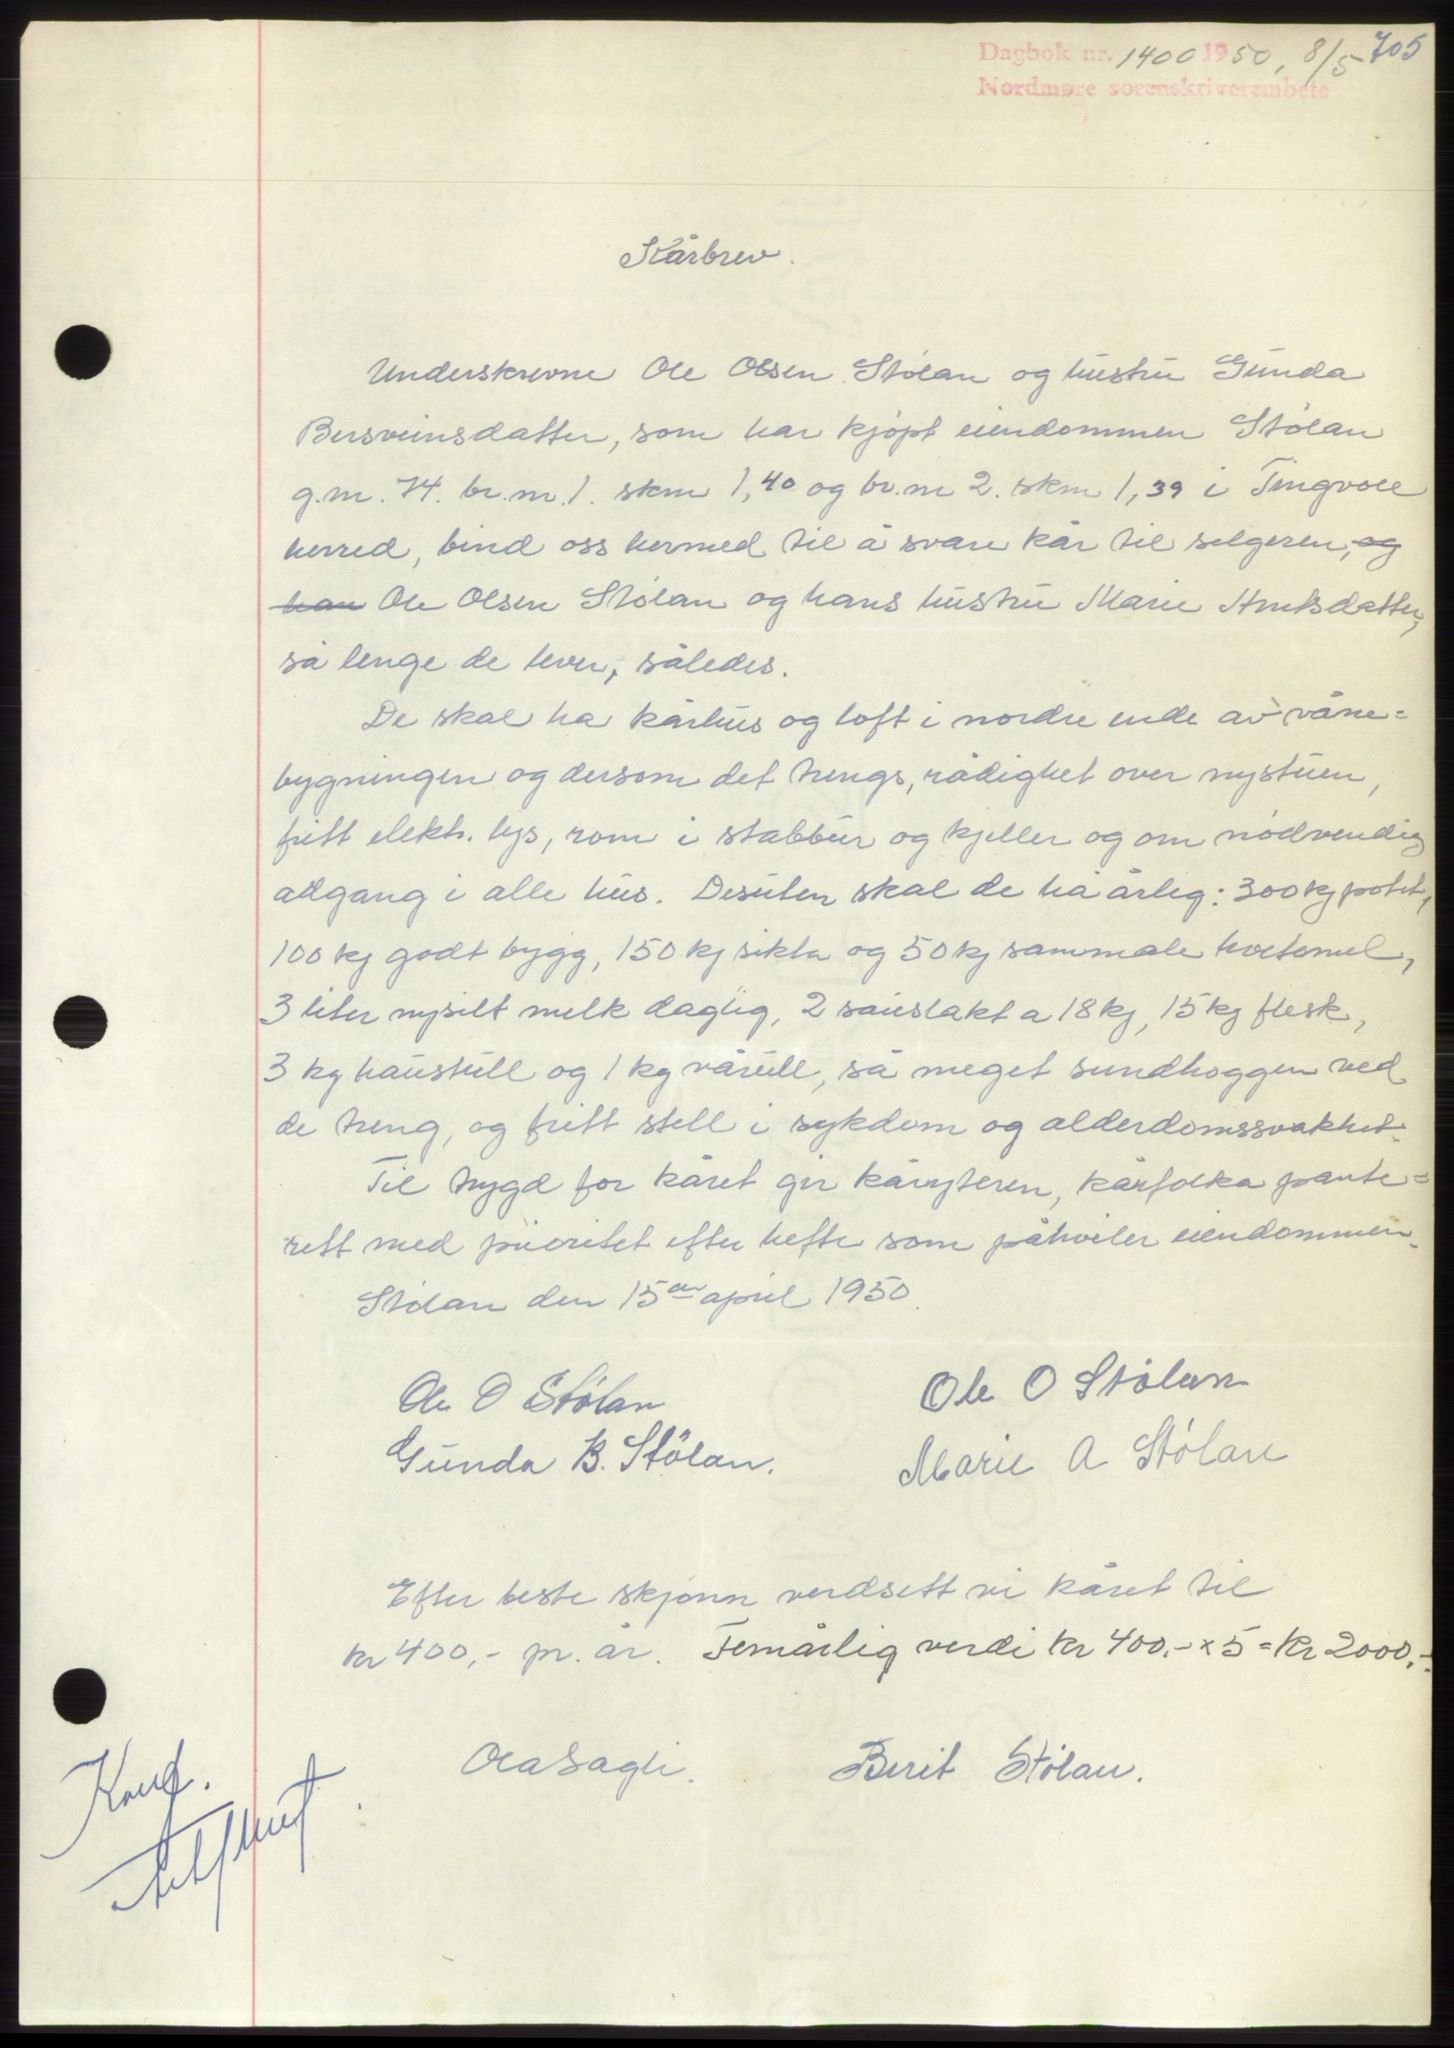 705
Dagbok nr. 1400 1950, 8/5
Nordmøre sorenskriverembete
Kårbrev.
Underskrevne Ole Olsen Stølan og hustru Gunda
Bersveinsdatter, som har kjøpt eiendommen Stølan
g.nr. 74. br.nr. 1. skm 1,40 og br.nr 2. skm 1,39 i Tingvoll
herred, bind oss hermed til å svare kår til selgeren, og
han Ole Olsen Stølan og hans hustru Marie Arntsdatter,
så lenge de lever, således.
De skal ha kårhus og loft i nordre ende av våne=
bygningen og dersom det trengs, rådighet over nystuen,
fritt elektr. lys, rom i stabbur og kjeller og om nødvendig
adgang i alle hus. Desuten skal de ha årlig: 300 kg potet,
100 kg godt bygg, 150 kg sikta og 50 kg sammale hvetemel,
3 liter nysilt melk daglig, 2 sauslakt a 18 kg, 15 kg flesk,
3 kg haustull og 1 kg vårull, så meget sundhoggen ved
de treng, og fritt stell i sykdom og alderdomssvakhet.
Til trygd for kåret gir kåryteren, kårfolka pante=
rett med prioritet efter hefte som påhviler eiendommen.
Stølan den 15de april 1950.
Ole O Stølan
Ole O Stølan
Gunda B. Stølan.
Marie A Stølan
Efter beste skjønn verdsett vi kåret til
kr 400,- pr. år. Femårlig verdi kr 400.- x 5 = Kr 2000.-
Ola Sagli.
Berit Stølan.
Konf.